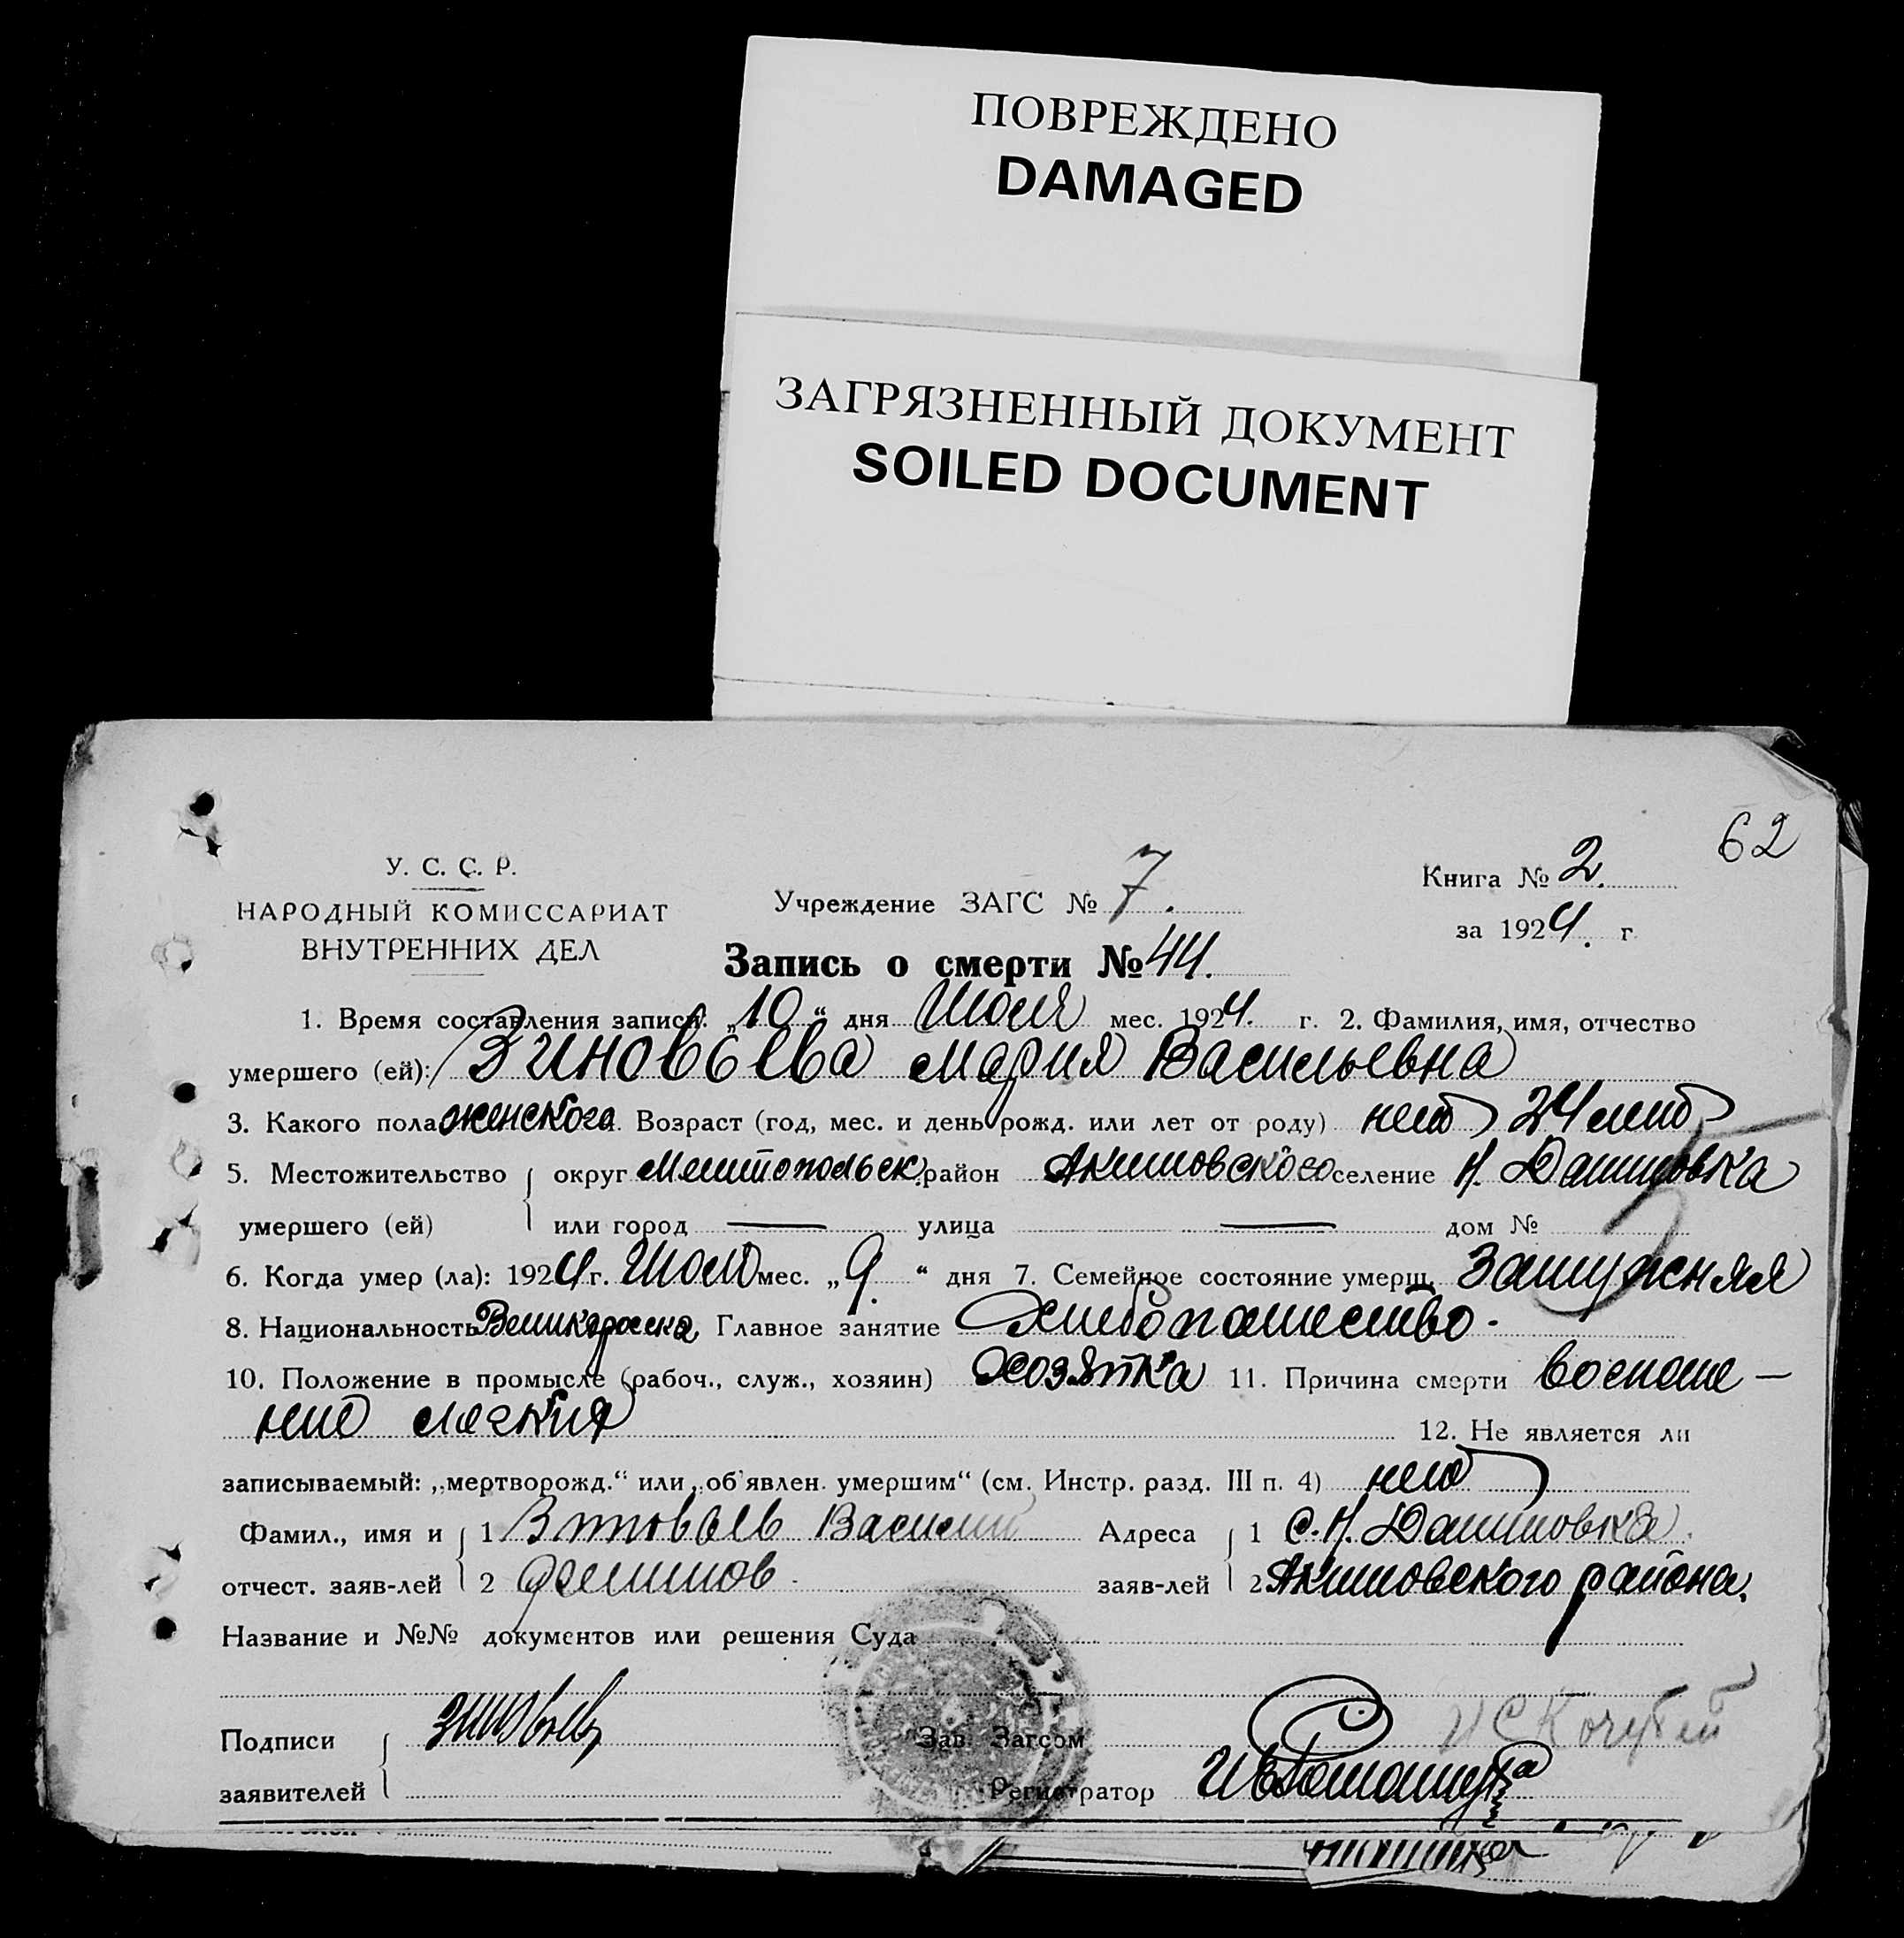 ПОВРЕЖДЕНО
DAMAGED
ЗАГРЯЗНЕННЫЙ ДОКУМЕНТ
SOILED DOCUMENT
62
У. С. С. Р.
НАРОДНЫЙ КОМИССАРИАТ
ВНУТРЕННИХ ДЕЛ
Учреждение ЗАГС № 7.
Книга № 2.
за 1924. г.
Запись о смерти № 44.
1. Время составления записи: „10“ дня Июля мес. 1924. г. 2. Фамилия, имя, отчество
умершего (ей): Зиновьева Мария Васильевна
3. Какого пола женского. Возраст (год, мес. и день рожд. или лет от роду) нет 24 лет
5. Местожительство округ Мелитопольск. район Акимовского селение Н. Даниловка
умершего (ей) или город — улица — дом №
6. Когда умер (ла): 1924 г. Июля мес. „9.“ дня 7. Семейное состояние умерш. Замужняя
8. Национальность Великоросска, Главное занятие Хлебопашество.
10. Положение в промысле (рабоч., служ., хозяин) Хозяйка 11. Причина смерти воспале-
ние легкия
12. Не является ли
записываемый: „мертворожд.“ или „об'явлен. умершим“ (см. Инстр. разд. III п. 4) нет
Фамил., имя и 1 Зиновьев Василий Адреса 1 С. Н. Даниловка.
отчест. заяв-лей 2 заяв-лей 2 Акимовского района.
Название и №№ документов или решения Суда
Подписи Зиновьев Зав. Загсом
заявителей Регистратор